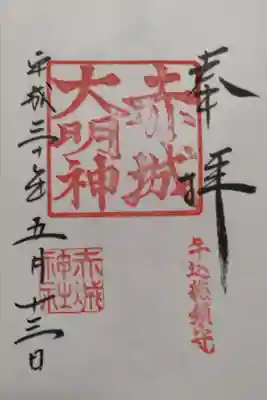 奉拝
赤城
大明神
牛込総鎮守
赤城
神社
平成三十年五月廿三日